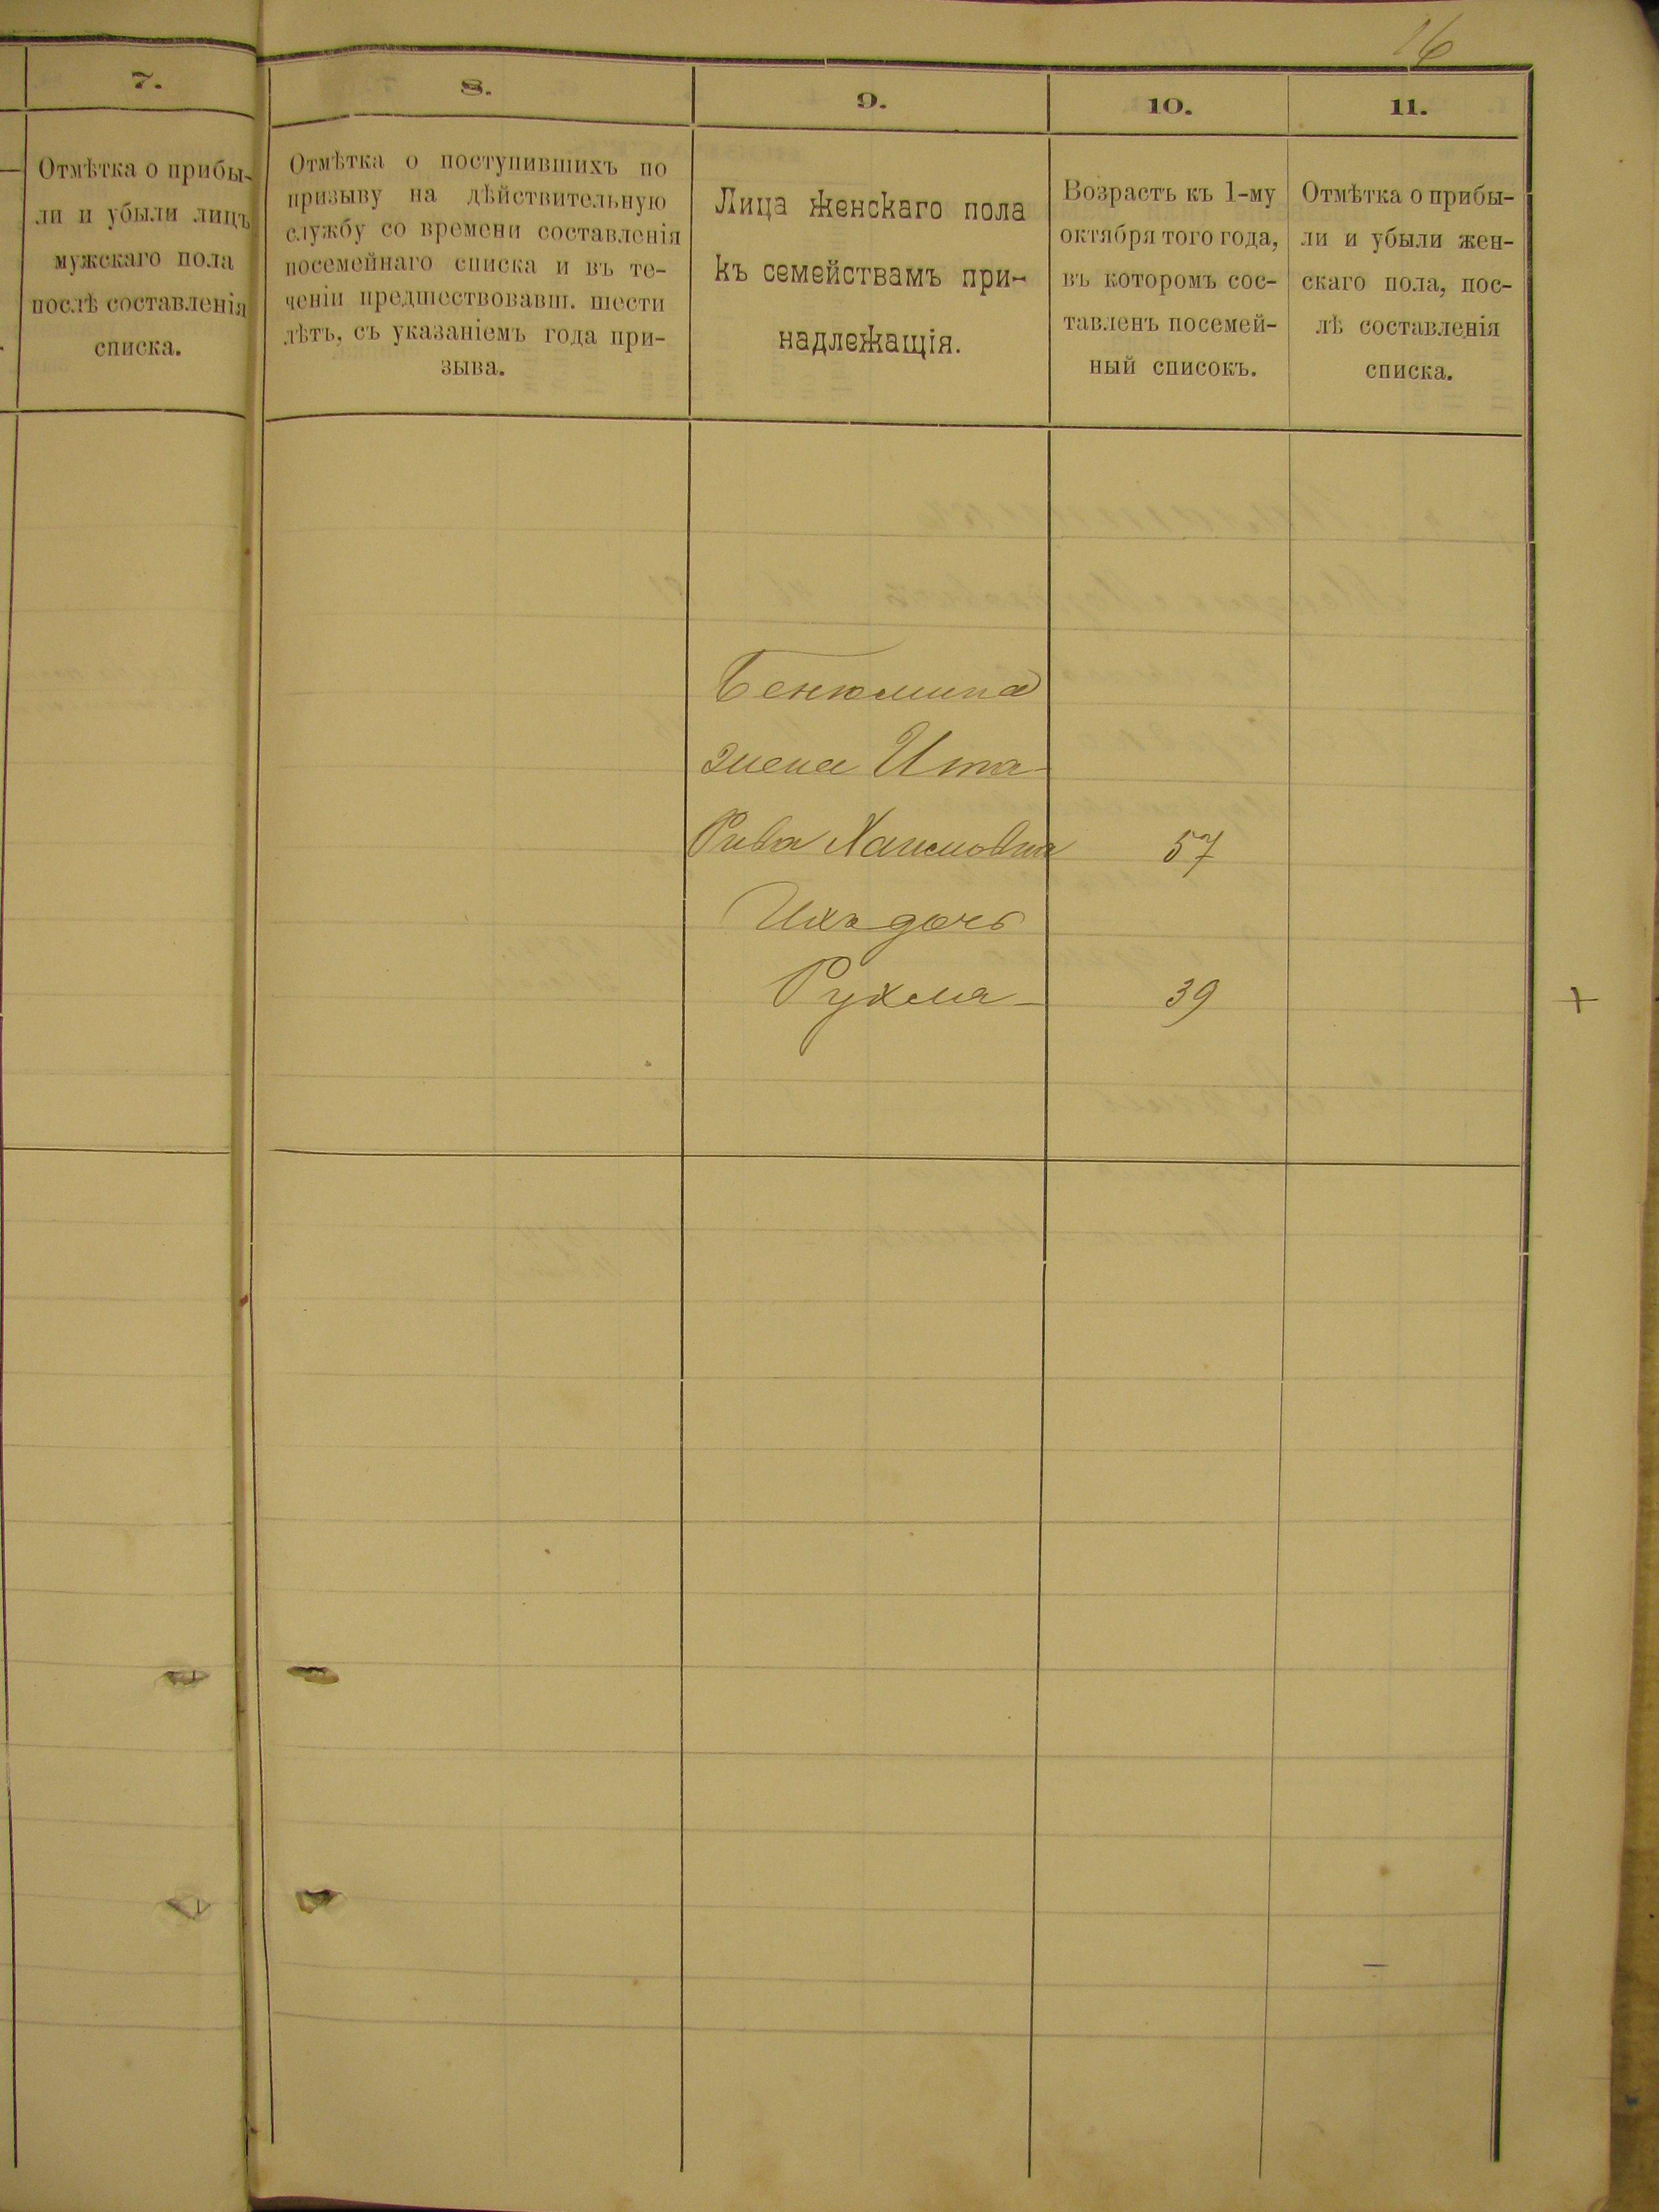 16
7.
Отмѣтка о прибы-
ли и убыли лицъ
мужскаго пола
послѣ составленія
списка.
8.
Отмѣтка о поступившихъ по
призыву на дѣйствительную
службу со времени составленія
посемейнаго списка и въ те-
ченіи предшествовавш. шести
лѣтъ, съ указаніемъ года при-
зыва.
9.
Лица женскаго пола
къ семействамъ при-
надлежащія.
10.
Возрастъ къ 1-му
октября того года,
въ которомъ сос-
тавленъ посемей-
ный списокъ.
11.
Отмѣтка о прибы-
ли и убыли жен-
скаго пола, пос-
лѣ составленія
списка.
Бенюмина
жена Ита-
Рива Хаимовна 57
Ихъ дочь
Рухма 39